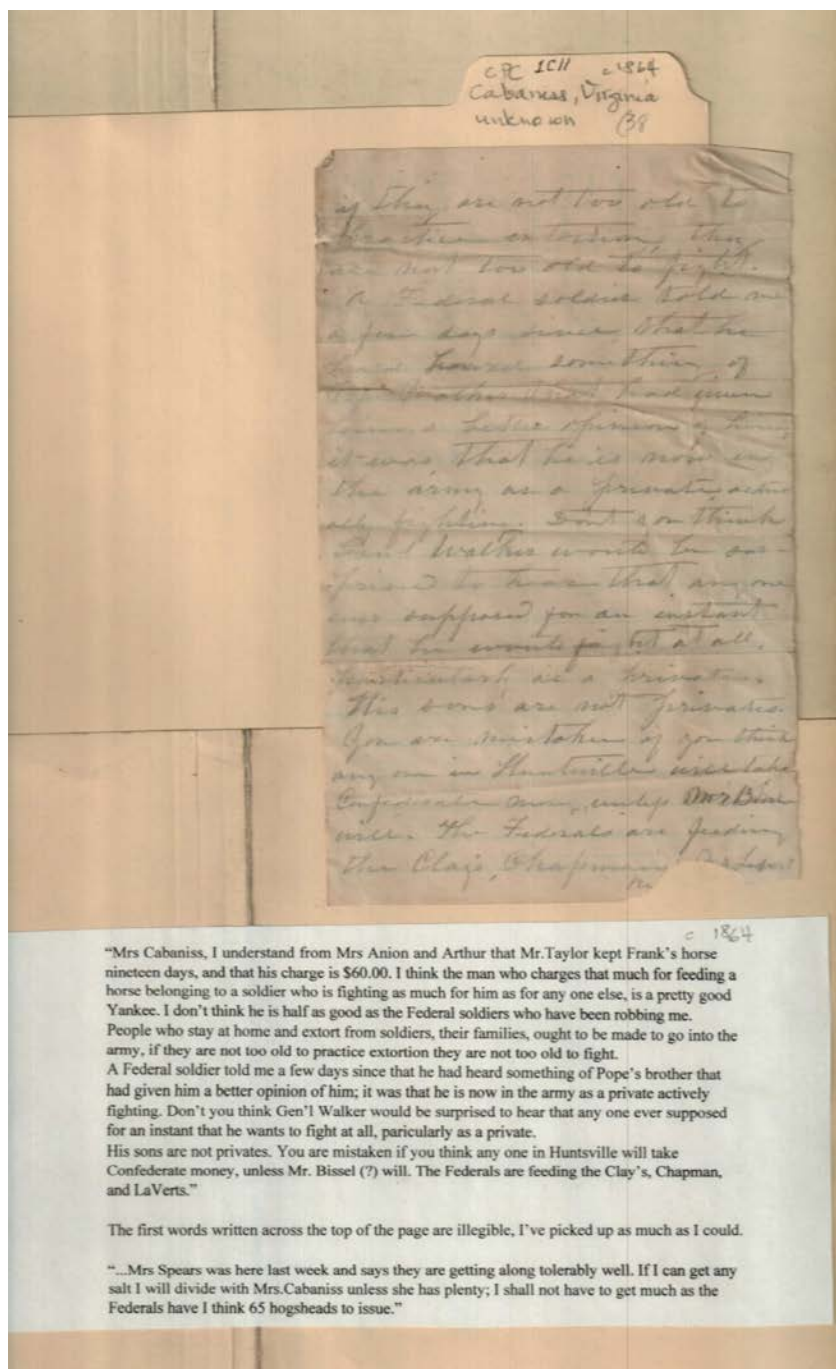 CPC 1C11 c 1864
Cabaness, Virginia
unknown (38
if they are not too old to
practice extortion, they
are not too old to fight.
A Federal soldier told me
a few days since that he
had heard something of
brother that had given
him a better opinion of him,
it was that he is now in
the army as a private, activ
ely fighting. Dont you think
Genl Walker would be sur-
prised to hear that any one
ever supposed for an instant
that he wants to fight at all,
particularly as a private.
His sons are not privates.
You are mistaken if you think
any one in Huntsville will take
Confederate money, unless Mr
will. The Federals are feeding
the Clays, Chapmans
c 1864
“Mrs Cabaniss, I understand from Mrs Anion and Arthur that Mr.Taylor kept Frank’s horse
nineteen days, and that his charge is $60.00. I think the man who charges that much for feeding a
horse belonging to a soldier who is fighting as much for him as for any one else, is a pretty good
Yankee. I don’t think he is half as good as the Federal soldiers who have been robbing me.
People who stay at home and extort from soldiers, their families, ought to be made to go into the
army, if they are not too old to practice extortion they are not too old to fight.
A Federal soldier told me a few days since that he had heard something of Pope’s brother that
had given him a better opinion of him; it was that he is now in the army as a private actively
fighting. Don’t you think Gen’l Walker would be surprised to hear that any one ever supposed
for an instant that he wants to fight at all, paricularly as a private.
His sons are not privates. You are mistaken if you think any one in Huntsville will take
Confederate money, unless Mr. Bissel (?) will. The Federals are feeding the Clay’s, Chapman,
and LaVerts.”
The first words written across the top of the page are illegible, I’ve picked up as much as I could.
“...Mrs Spears was here last week and says they are getting along tolerably well. If I can get any
salt I will divide with Mrs.Cabaniss unless she has plenty; I shall not have to get much as the
Federals have I think 65 hogsheads to issue.”